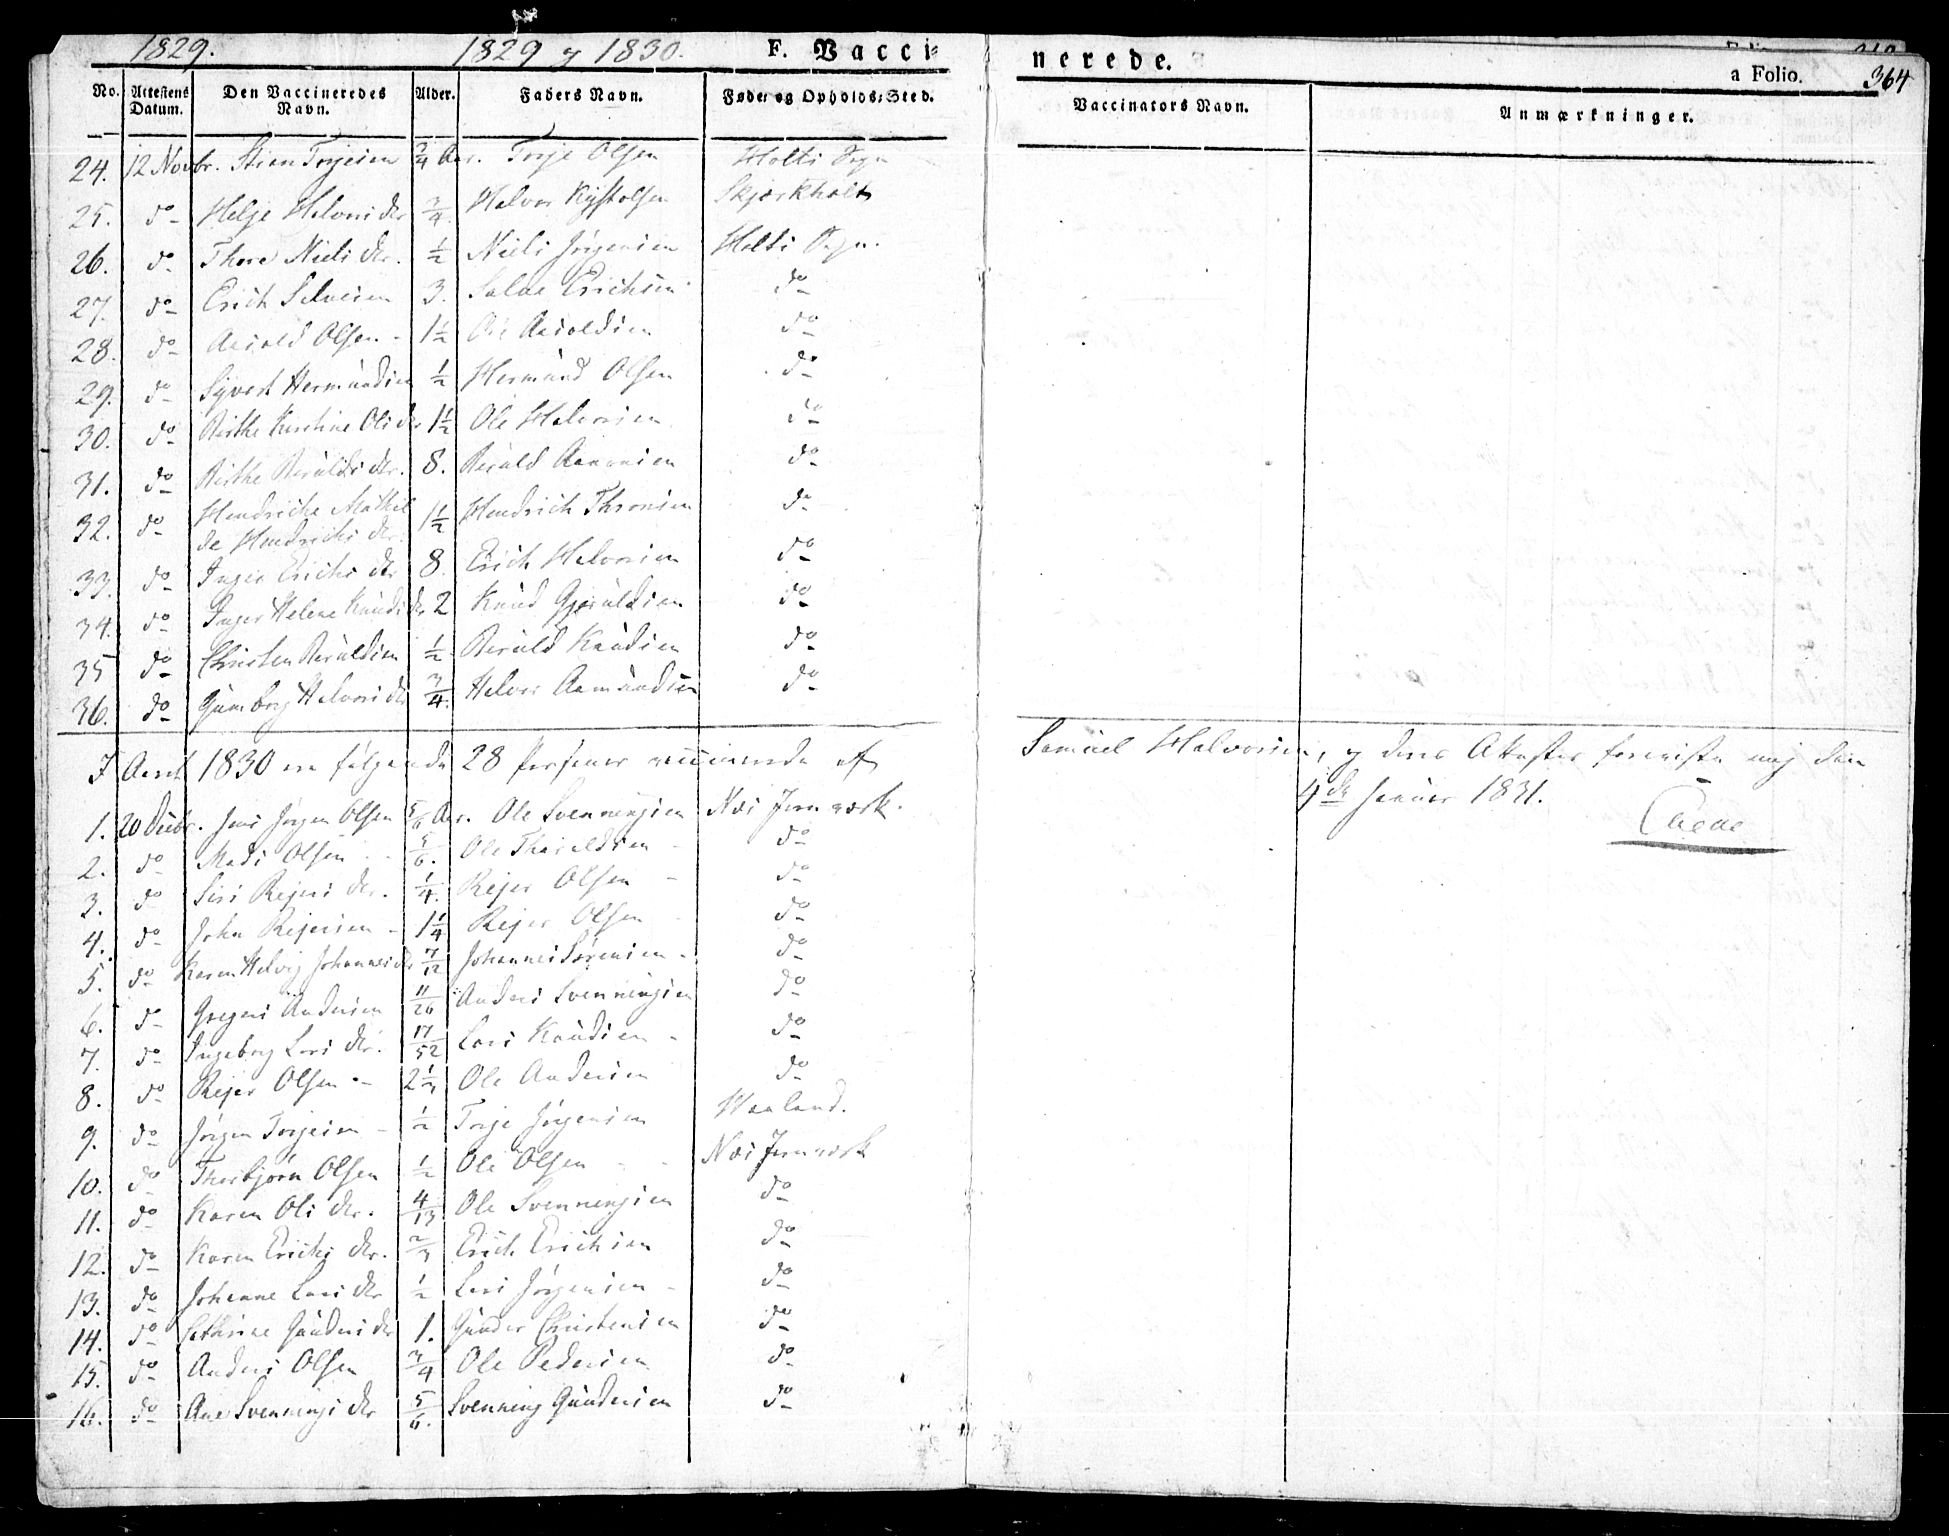 1829. 1829 og 1830. F. Vacci=
nerede.
a Folio. 364
No. Attestens Datum. Den Vaccineredes Navn. Alder. Faders Navn. Føde og Opholds-Sted.
Vaccinators Navn. Anmærkninger.
24. 12 Novbr. Torjesen 3/4 Aar. Torje Olsen Holts Sogn
25. do Helje Halvors dtr 3/4. Halvor Skjærkholt
26. do Thore Niels dtr. 1/2 Niels Jørgensen Holts Sogn.
27. do Erich Salvesen 3. Salve Erichsen do
28. do Aasold Olsen - 1 1/2 Ole Aasoldsen do
29. do Syvert Hermundsen 1/2 Hermund Olsen do
30. do Birthe Kirstine Ols dtr 1 1/2 Ole Halvorsen do
31. do Birthe Beruldsdtr. 8. Beruld Aanonsen do
32. do Hendriche Mathil
de Hendrichs dtr. 1 1/2 Hendrich Thronsen do
33. do Inger Erichs dtr 8 Erich Halvorsen do
34. do Inger Helene Knuds dtr 2 Knud Gjeruldsen do
35 do Christen Beruldsen 1/2 Beruld Knudsen do
36. do Gunborg Halvors dtr 3/4. Halvor Aamundsen do
I Aaret 1830 ere følgende 28 Personer vaccinerede af
Samuel Halvorsen, og deres Attester foreviste mig den
4de Januar 1831.
1. 20 Decbr. Jens Jørgen Olsen 5/6 Aar. Ole Svenningsen Næs Jernværk.
2. do Mads Olsen 5/6. Ole Tharaldsen do
3. do Siri Rejers dtr. 1/4. Rejer Olsen do
4. do John Rejersen 1 1/4 Rejer Olsen do
5. do Karen Helvig Johannes dtr 7/12 Johannes Sørensen do
6. do Gregers Andersen 11/26 Anders Svenningsen do
7. do Ingeborg Lars dtr. 17/52 Lars Knudsen do
8. do Rejer Olsen 2 1/2 Ole Andersen do
9. do Jørgen Torjesen 1/2 Torje Jørgensen Waaland.
10. do Thorbjørn Olsen 1/2 Ole Olsen Næs Jernværk
11. do Karen Ols dtr. 4/13 Ole Svenningsen do
12. do Karen Erichs dtr. 2/3 Erich Erichsen do
13. do Johanne Lars dtr 1/2 Lars Jørgensen do
14. do Cathrine Gunders dtr 1. Gunder Christensen do
15. do Anders Olsen 3/4 Ole Pedersen do
16. do Ane Svennings dtr 5/6. Svenning Gundersen do